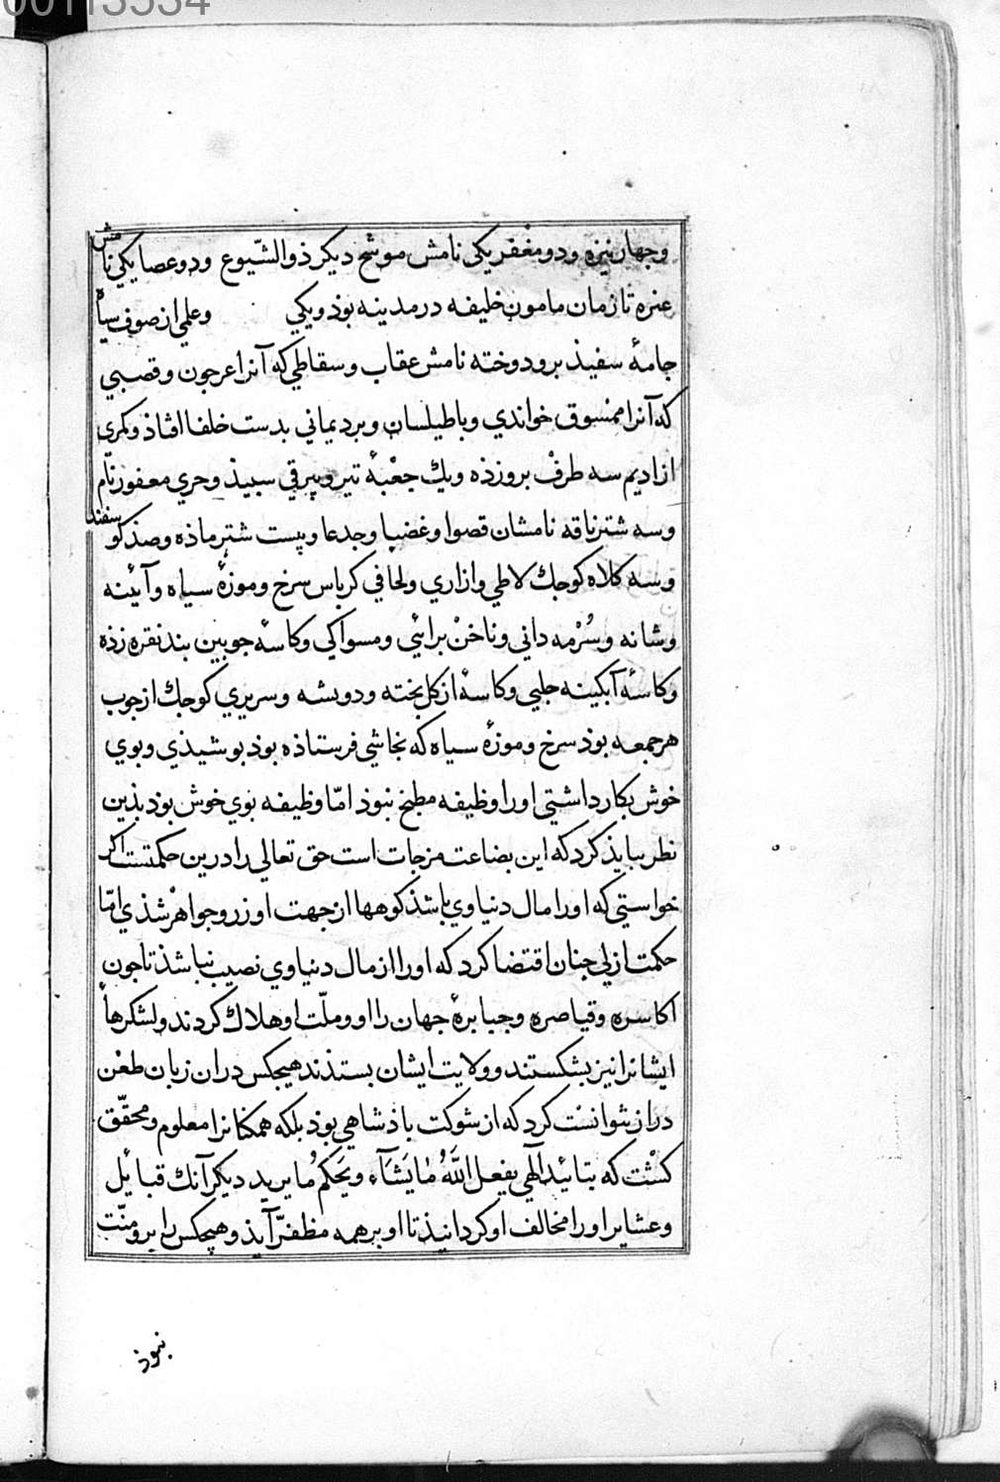 00113534
وجهار نیزه ودو مغفر یکی نامش موشح دیکر ذو الشیوع ودو عصا یکی نامش
عنزه تا زمان مامون خلیفه در مدینه بوذ ویکی وعلمی از صوف سیاه
جامهٔ سفیذ برو دوخته نامش عقاب وسقاطی که آنرا عرجون وقصبی
که آنرا ممنسوق خواندی وباطیلسان وبرد یمانی بدست خلفا افتاذ وکمری
از ادیم سه طرف بروزذه ویك جعبهٔ تیر وبیرقی سبیذ وخری معفور نام
وسه شتر ناقه نامشان قصوا وغضبا وجدعا وبیست شتر ماذه وصذ کوسفند
وسه کلاه کوجك لاطی وازاری ولحافی کرباس سرخ وموزهٔ سیاه وآئینه
وشانه وسُرْمه دانی وناخن برائی ومسواکی وکاسهٔ جوبین بند نقره زذه
وکاسهٔ آبکینه حلبی وکاسهٔ از کل بخته ودو بشه وسریری کوجك از جوب
هر جمعه بوذ سرخ وموزهٔ سیاه که نجاشی فرستاذه بوذ بوشیذی وبوی
خوش بکار داشتی اورا وظیفه مطبخ نبوذ امّا وظیفه بوی خوش بوذ بذین
نظر ببایذ کرد که این بضاعت مزجات است حق تعالی را درین حکمتست اکر
خواستی که اورا مال دنیاوی باشذ کوهها از جهت او زر وجواهر شذی امّا
حکمت ازلی جنان اقتضا کرد که اورا از مال دنیاوی نصیب نباشذ تا جون
اکاسره وقیاصره وجبابرهٔ جهان را او وملّت او هلاك کردند ولشکرهاٴ
ایشانرا نیز بشکستند وولایت ایشان بستذند هیجکس دران زبان طعن
دراز نتوانست کرد که از شوکت باذشاهی بوذ بلکه همکنانرا معلوم ومحقّق
کشت که بتائید آلهی یفعل اللّٰهُ مٰا یَشَآء ویَحکم مُا یرید دیکر آنك قبائل
وعشایر اورا مخالف او کردانیذ تا او بر همه مظفّر آیذ وهیجکس را برو منّت
نبوذ